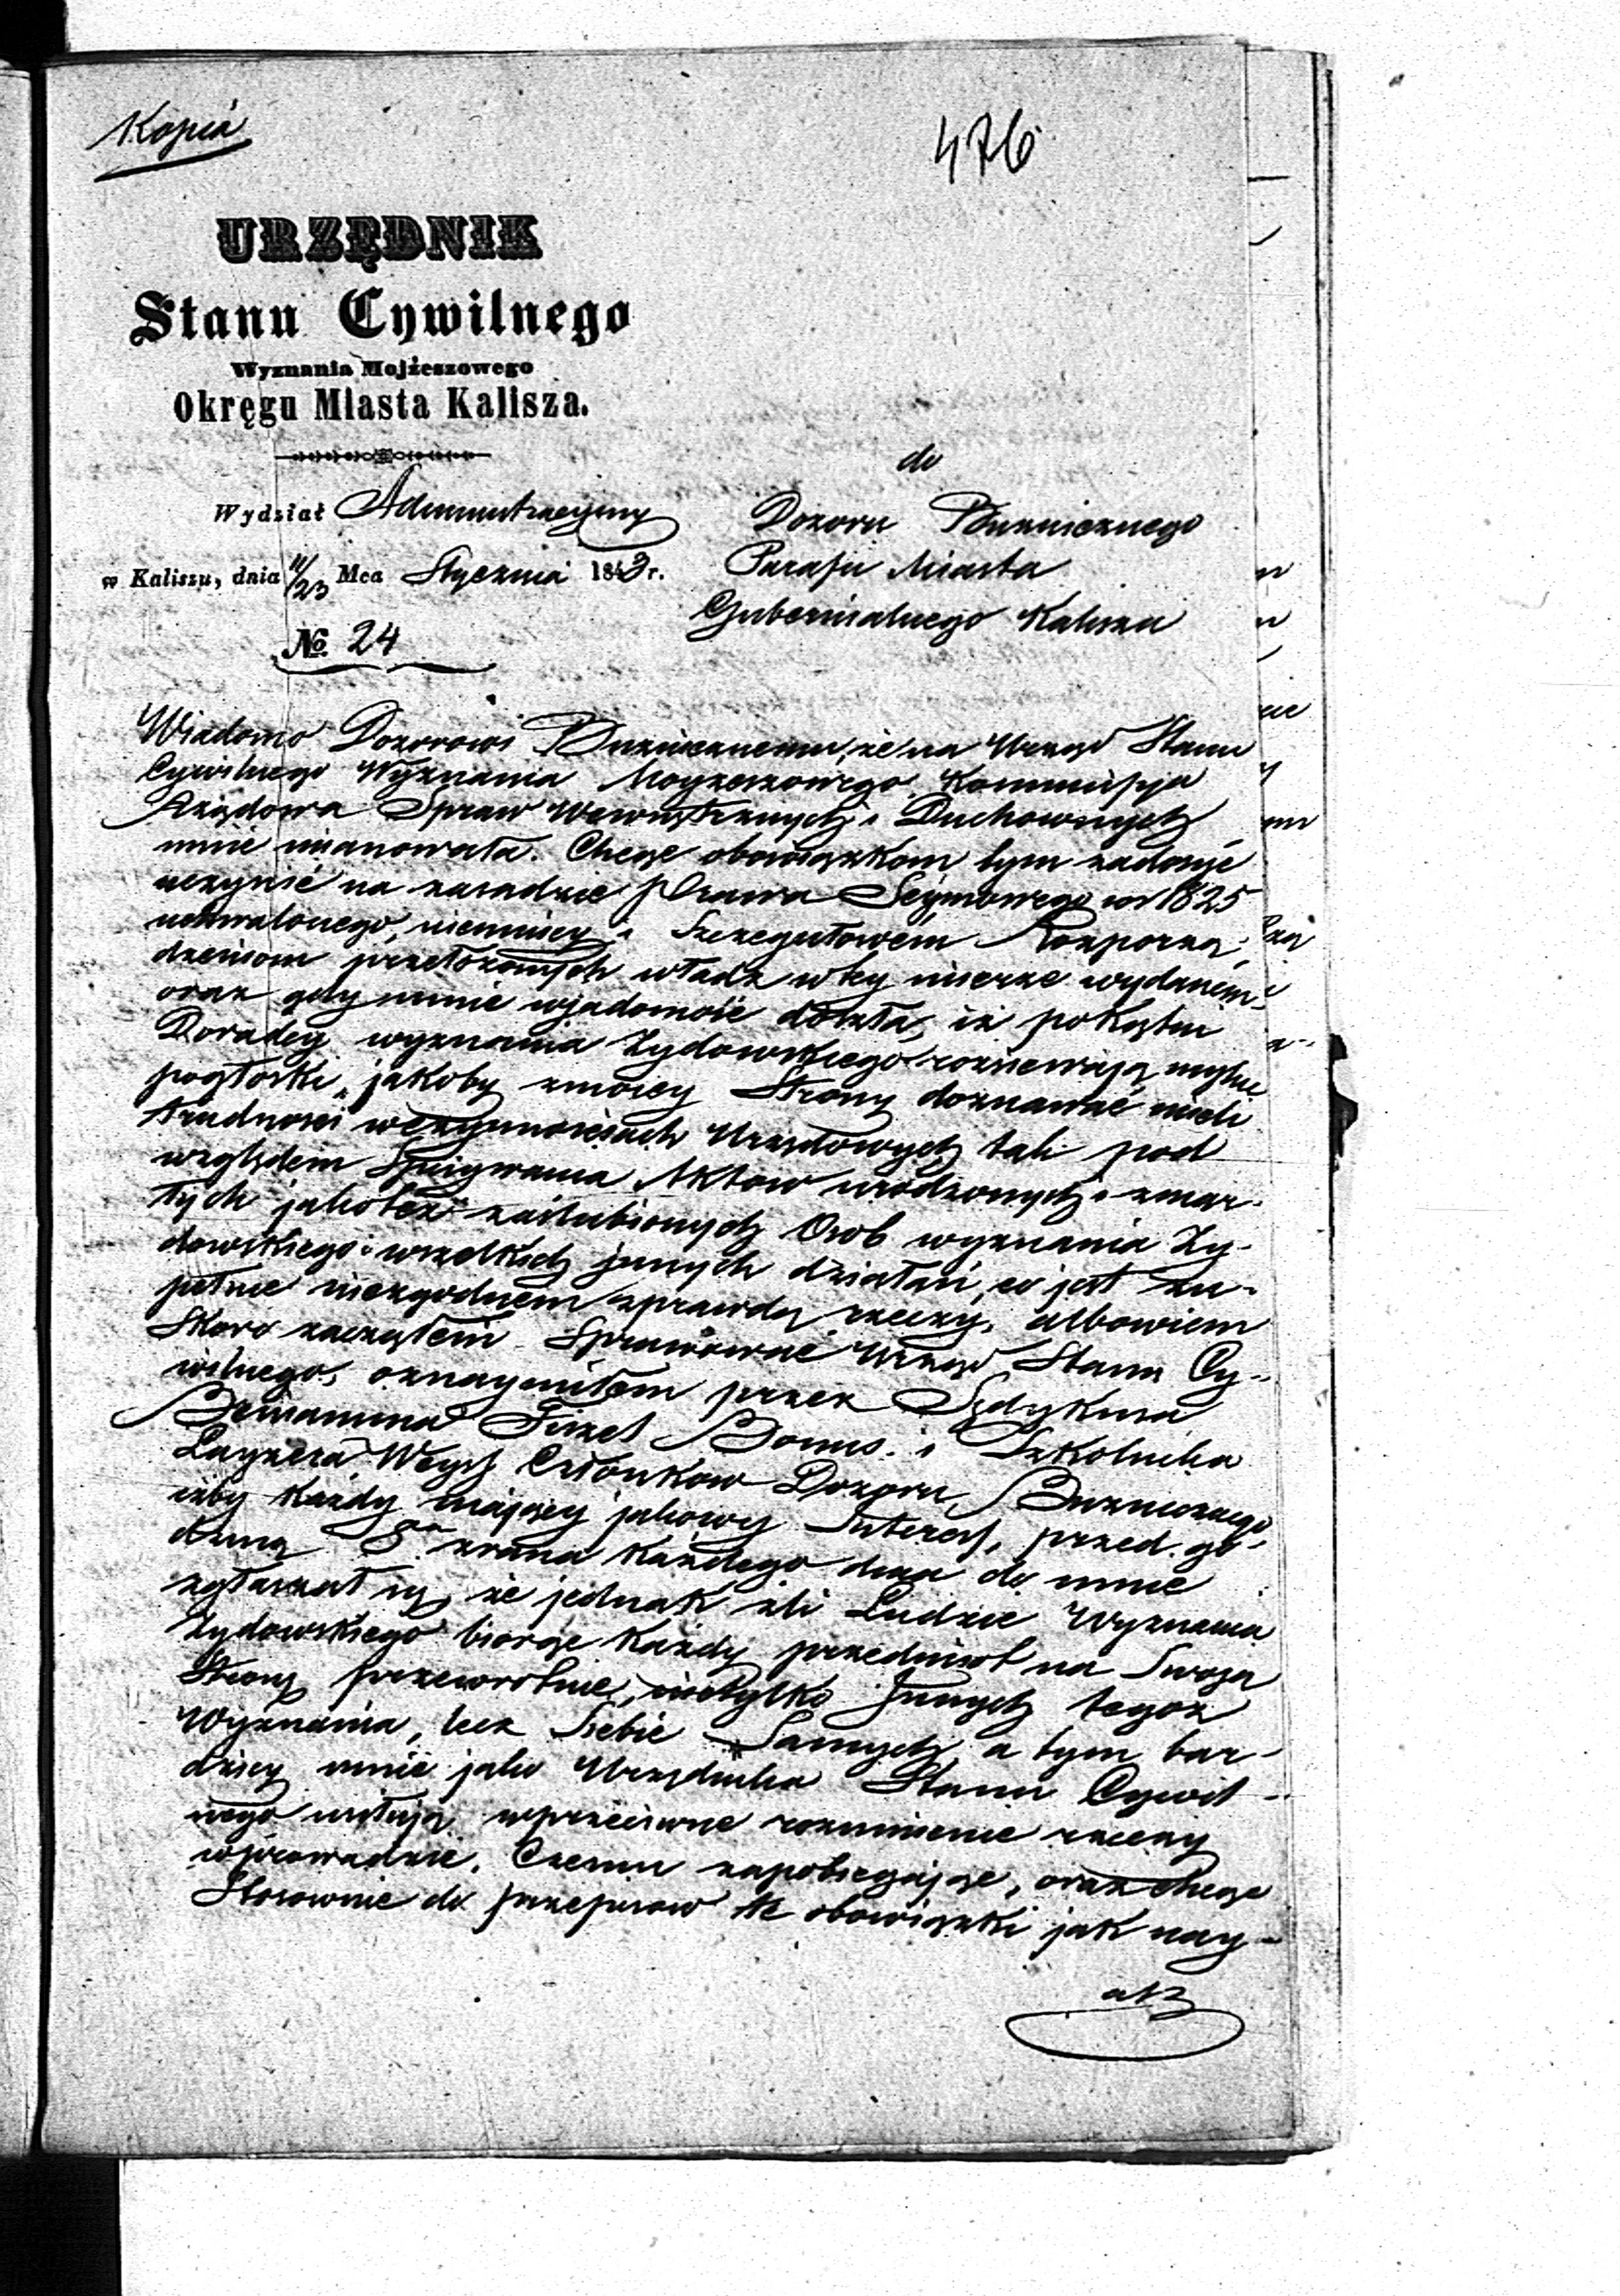 Kopia
476
URZĘDNIK
Stanu Cywilnego
Wyznania Mojżeszowego
Okręgu Miasta Kalisza.
Wydział Administracyjny
w Kaliszu, dnia 11/23 Mca Stycznia 1843 r.
№ 24
do
Dozoru Bużnicznego
Parafii Miasta
Gubernialnego Kalisza
Wiadomo Dozorowi Bużnicznemu, że na Urząd Stanu
Cywilnego Wyznania Moyżeszowego Kommissya
Rządowa Spraw Wewnętrznych i Duchownych
mnie mianowała. Chcąc obowiązkom tym zadosyć
uczynić na zasadzie Prawa Seymowego w r 1825
uchwalonego, niemniey i Szczegułowem Rozporzą-
dzeniom przełożonych władz w tey mierze wydanem
oraz gdy mnie wjadomość doszła, iż pokątni
Doradcy wyznania Żydowskiego rozsiewają mylne
pogłoski, jakoby zmoiey Strony doznawać mieli
trudności wczynnościach Urzędowych tak pod
względem Spisywania Aktow urodzonych i zmar-
łych jakoteż zaślubionych Osob wyznania Ży-
dowskiego i wszelkich jnnych działań, co jest zu-
pełnie niezgodnem zprawdą rzeczy, albowiem
Skoro zacząłem Sprawować Urząd Stanu Cy-
wilnego, oznaymiłem przez Sędykusa
Beniamina Bonus i Szkolnika
Layzera Weys Członkow Dozoru Bużnicznego
iżby każdy maiący jakowy Interes, przed go-
dziną 8ą zrana każdego dnia do mnie
zgłaszał się, że jednak źli Ludzie Wyznania
Żydowskiego biorąc każdy przedmiot na Swoją
Stronę przewrotnie, nietylko Jnnych tegoż
Wyznania, lecz Siebie Samych, a tym bar-
dziey mnie jako Urzędnika Stanu Cywil-
nego usiłują wprzeciwne rozumienie rzeczy
wprowadzić. Czemu zapobiegając, oraz chcąc
Stosownie do przepisow te obowiązki jak nay-